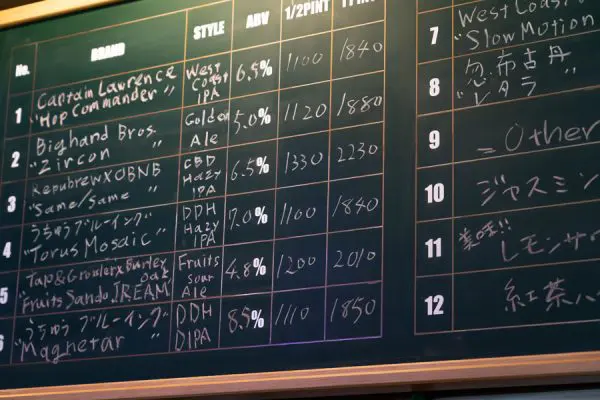 No. BRAND STYLE ABV 1/2PINT 1PINT
1 Captain Lawrence West 6.5% 1100 1840
"Hop Commander" Coast
IPA
2 Bighand Bros. Golden 5.0% 1120 1880
"Zircon" Ale
3 RepubrewXOBNB CBD 6.5% 1330 2230
"Same/Same" Hazy
IPA
4 うちゅうブルーイング DDH 7.0% 1100 1840
"Torus Mosaic" Hazy
IPA
5 Tap&GrowlerxBurley Fruits 4.8% 1200 2010
Oak Sour
"Fruits Sando JREAM" Ale
6 うちゅうブルーイング DDH 8.5% 1110 1850
"Magnetar" DIPA
7 West Coast
"Slow Motion
8 忽布古丹
"レタラ"
9 = Other
10 ジャスミン
11 美味!!
レモンサ
12 紅茶ハ